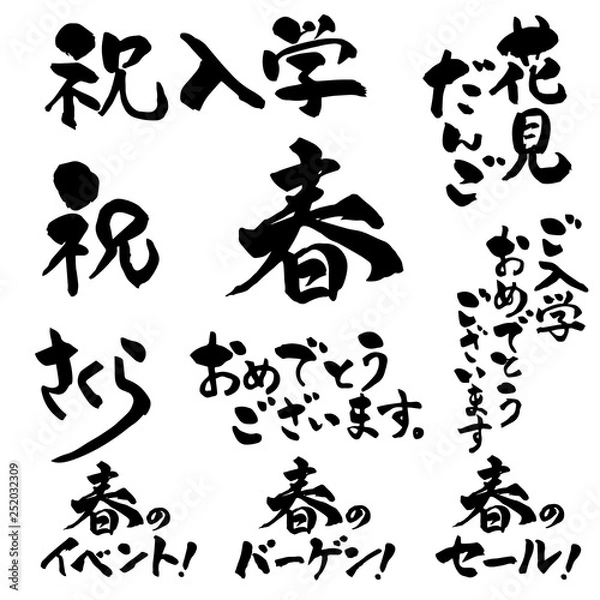 祝入学
花見
だんご
祝
春
ご入学
おめでとう
ございます
さくら
おめでとう
ございます。
春の
イベント!
春の
バーゲン!
春の
セール!
Adobe Stock | #252032309